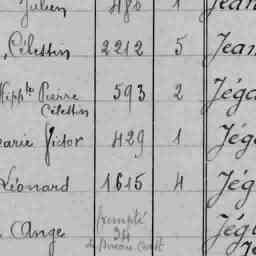 Julien 480 1 Jean
, Célestin 2212 5 Jean
Hippte Pierre 593 2 Jéga
Célestin
Marie Victor 429 1 Jég
Léonard 1615 4 Jég
Ange 34 Jég